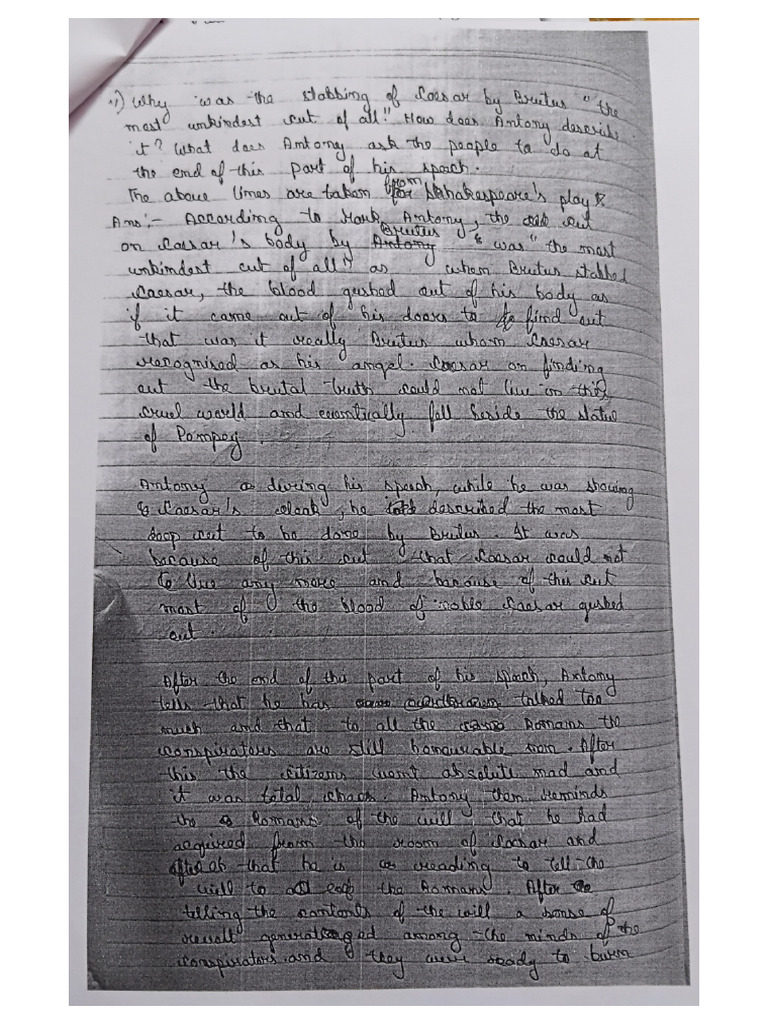 1) Why was the stabbing of Caesar by Brutus "the
most unkindest cut of all". How does Antony describe
it? What does Antony ask the people to do at
the end of this part of his speech.
The above lines are taken from Shakespeare's play
Ans:- According to Mark Antony, the cut
on Caesar's body by Brutus was "the most
unkindest cut of all" as when Brutus stabbed
Caesar, the blood gushed out of his body as
if it came out of his doors to find out
that was it really Brutus whom Caesar
recognised as his angel. Caesar on finding
out the brutal truth could not live in this
cruel world and eventically fell beside the statue
of Pompey.
Antony during his speech, while he was showing
Caesar's cloak, he described the most
deep cut to be done by Brutus. It was
because of this cut that Caesar could not
to live any more and because of this cut
most of the blood of noble Caesar gushed
out.
After the end of this part of his speech, Antony
tells that he has talked too
much and that to all the Romans the
conspirators are still honourable men. After
this the citizens went absolute mad and
it was total chaos. Antony then reminds
the Romans of the will that he had
acquired from the room of Caesar and
after that he is reading to tell the
will to all the Romans. After
telling the contents of the will a sense of
revolt generated among the minds of the
conspirators and they were ready to burn